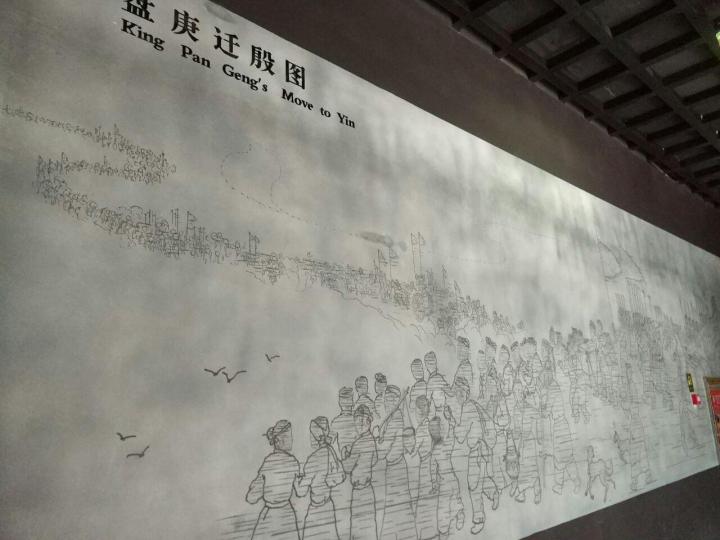 盘庚迁殷图
King Pan Geng's Move to Yin